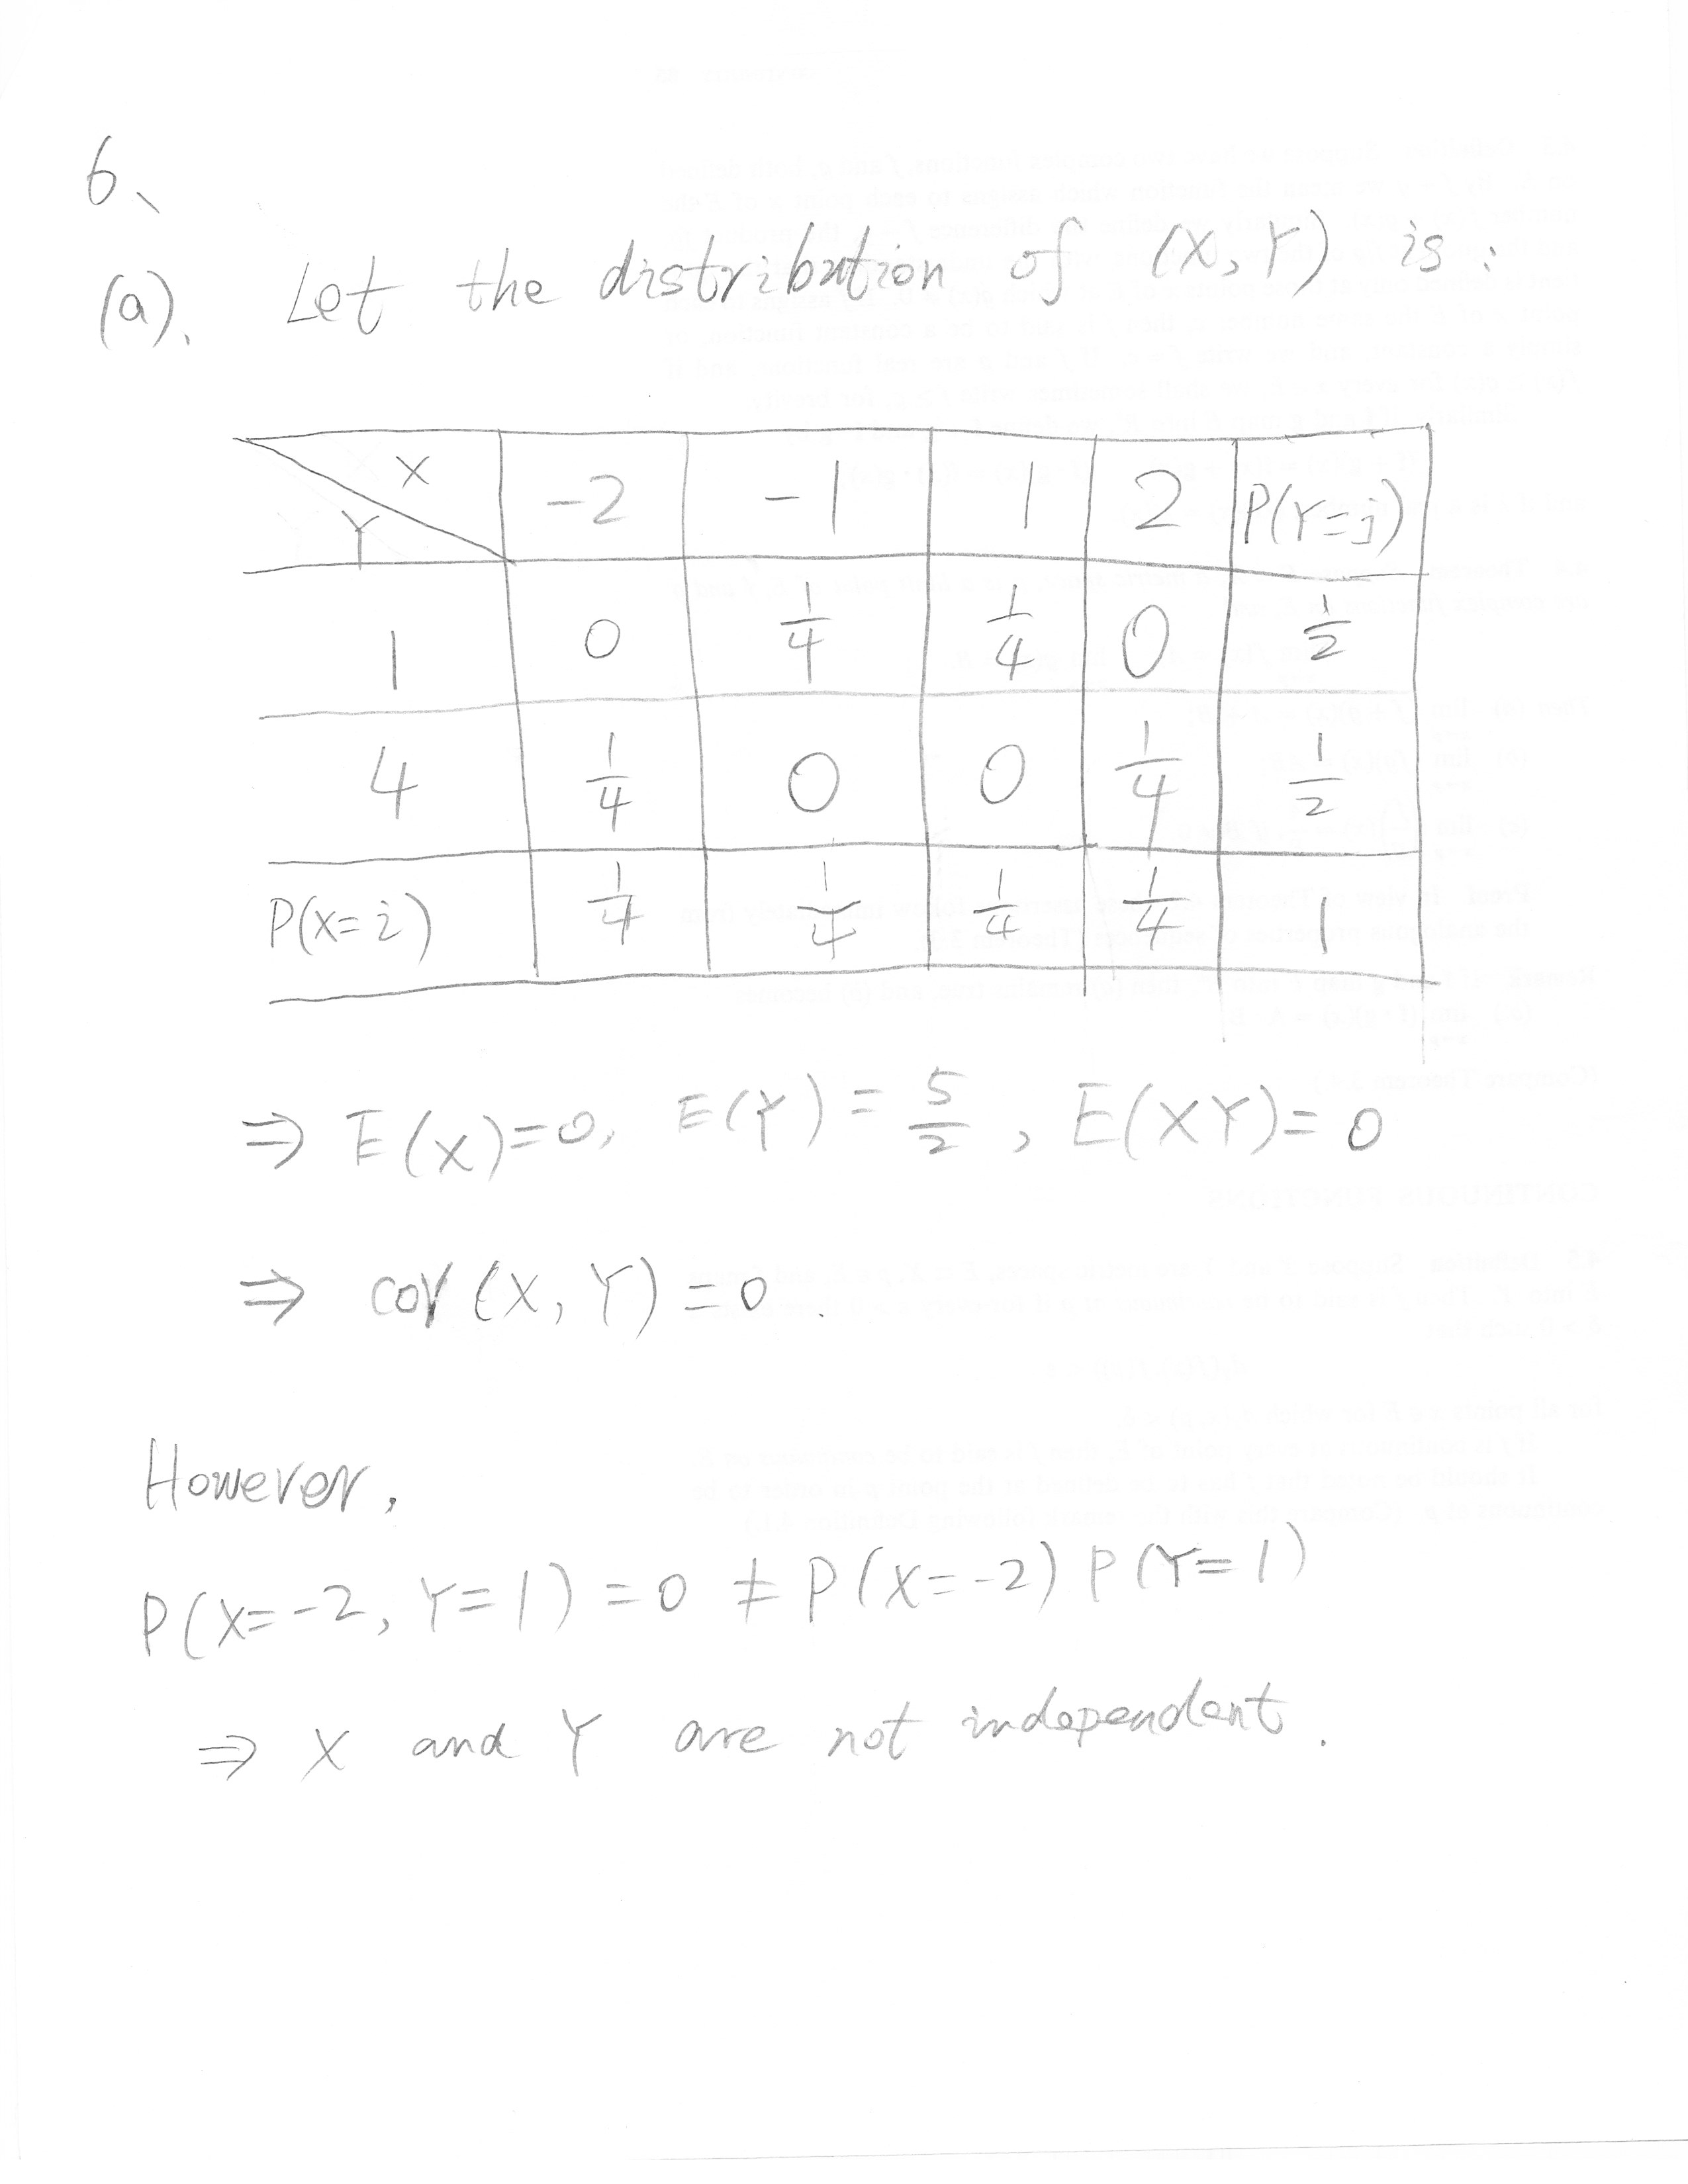 6、
(a). Let the distribution of (X, Y) is :
X
Y -2 -1 1 2 P(Y=j)
1 0 1/4 1/4 0 1/2
4 1/4 0 0 1/4 1/2
P(X=i) 1/4 1/4 1/4 1/4 1
⇒ E(X)=0, E(Y) = 5/2, E(XY)= 0
⇒ cov (X, Y) = 0.
However,
P(X=-2, Y=1) = 0 ≠ P(X=-2) P(Y=1)
⇒ X and Y are not independent.